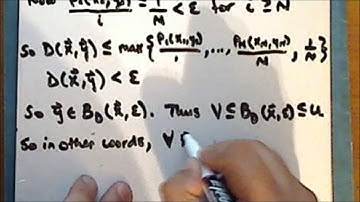 Now ρ₁(x₁,y₁)/i ≤ 1/N < ε for i ≥ N
So D(x⃗,y⃗) ≤ max{ρ₁(x₁,y₁)/1, ..., ρ_N(x_N,y_N)/N, 1/N}
D(x⃗,y⃗) < ε
So y⃗ ∈ B_D(x⃗,ε). Thus V ⊆ B_D(x⃗,ε) ⊆ U
So in other words, ∀